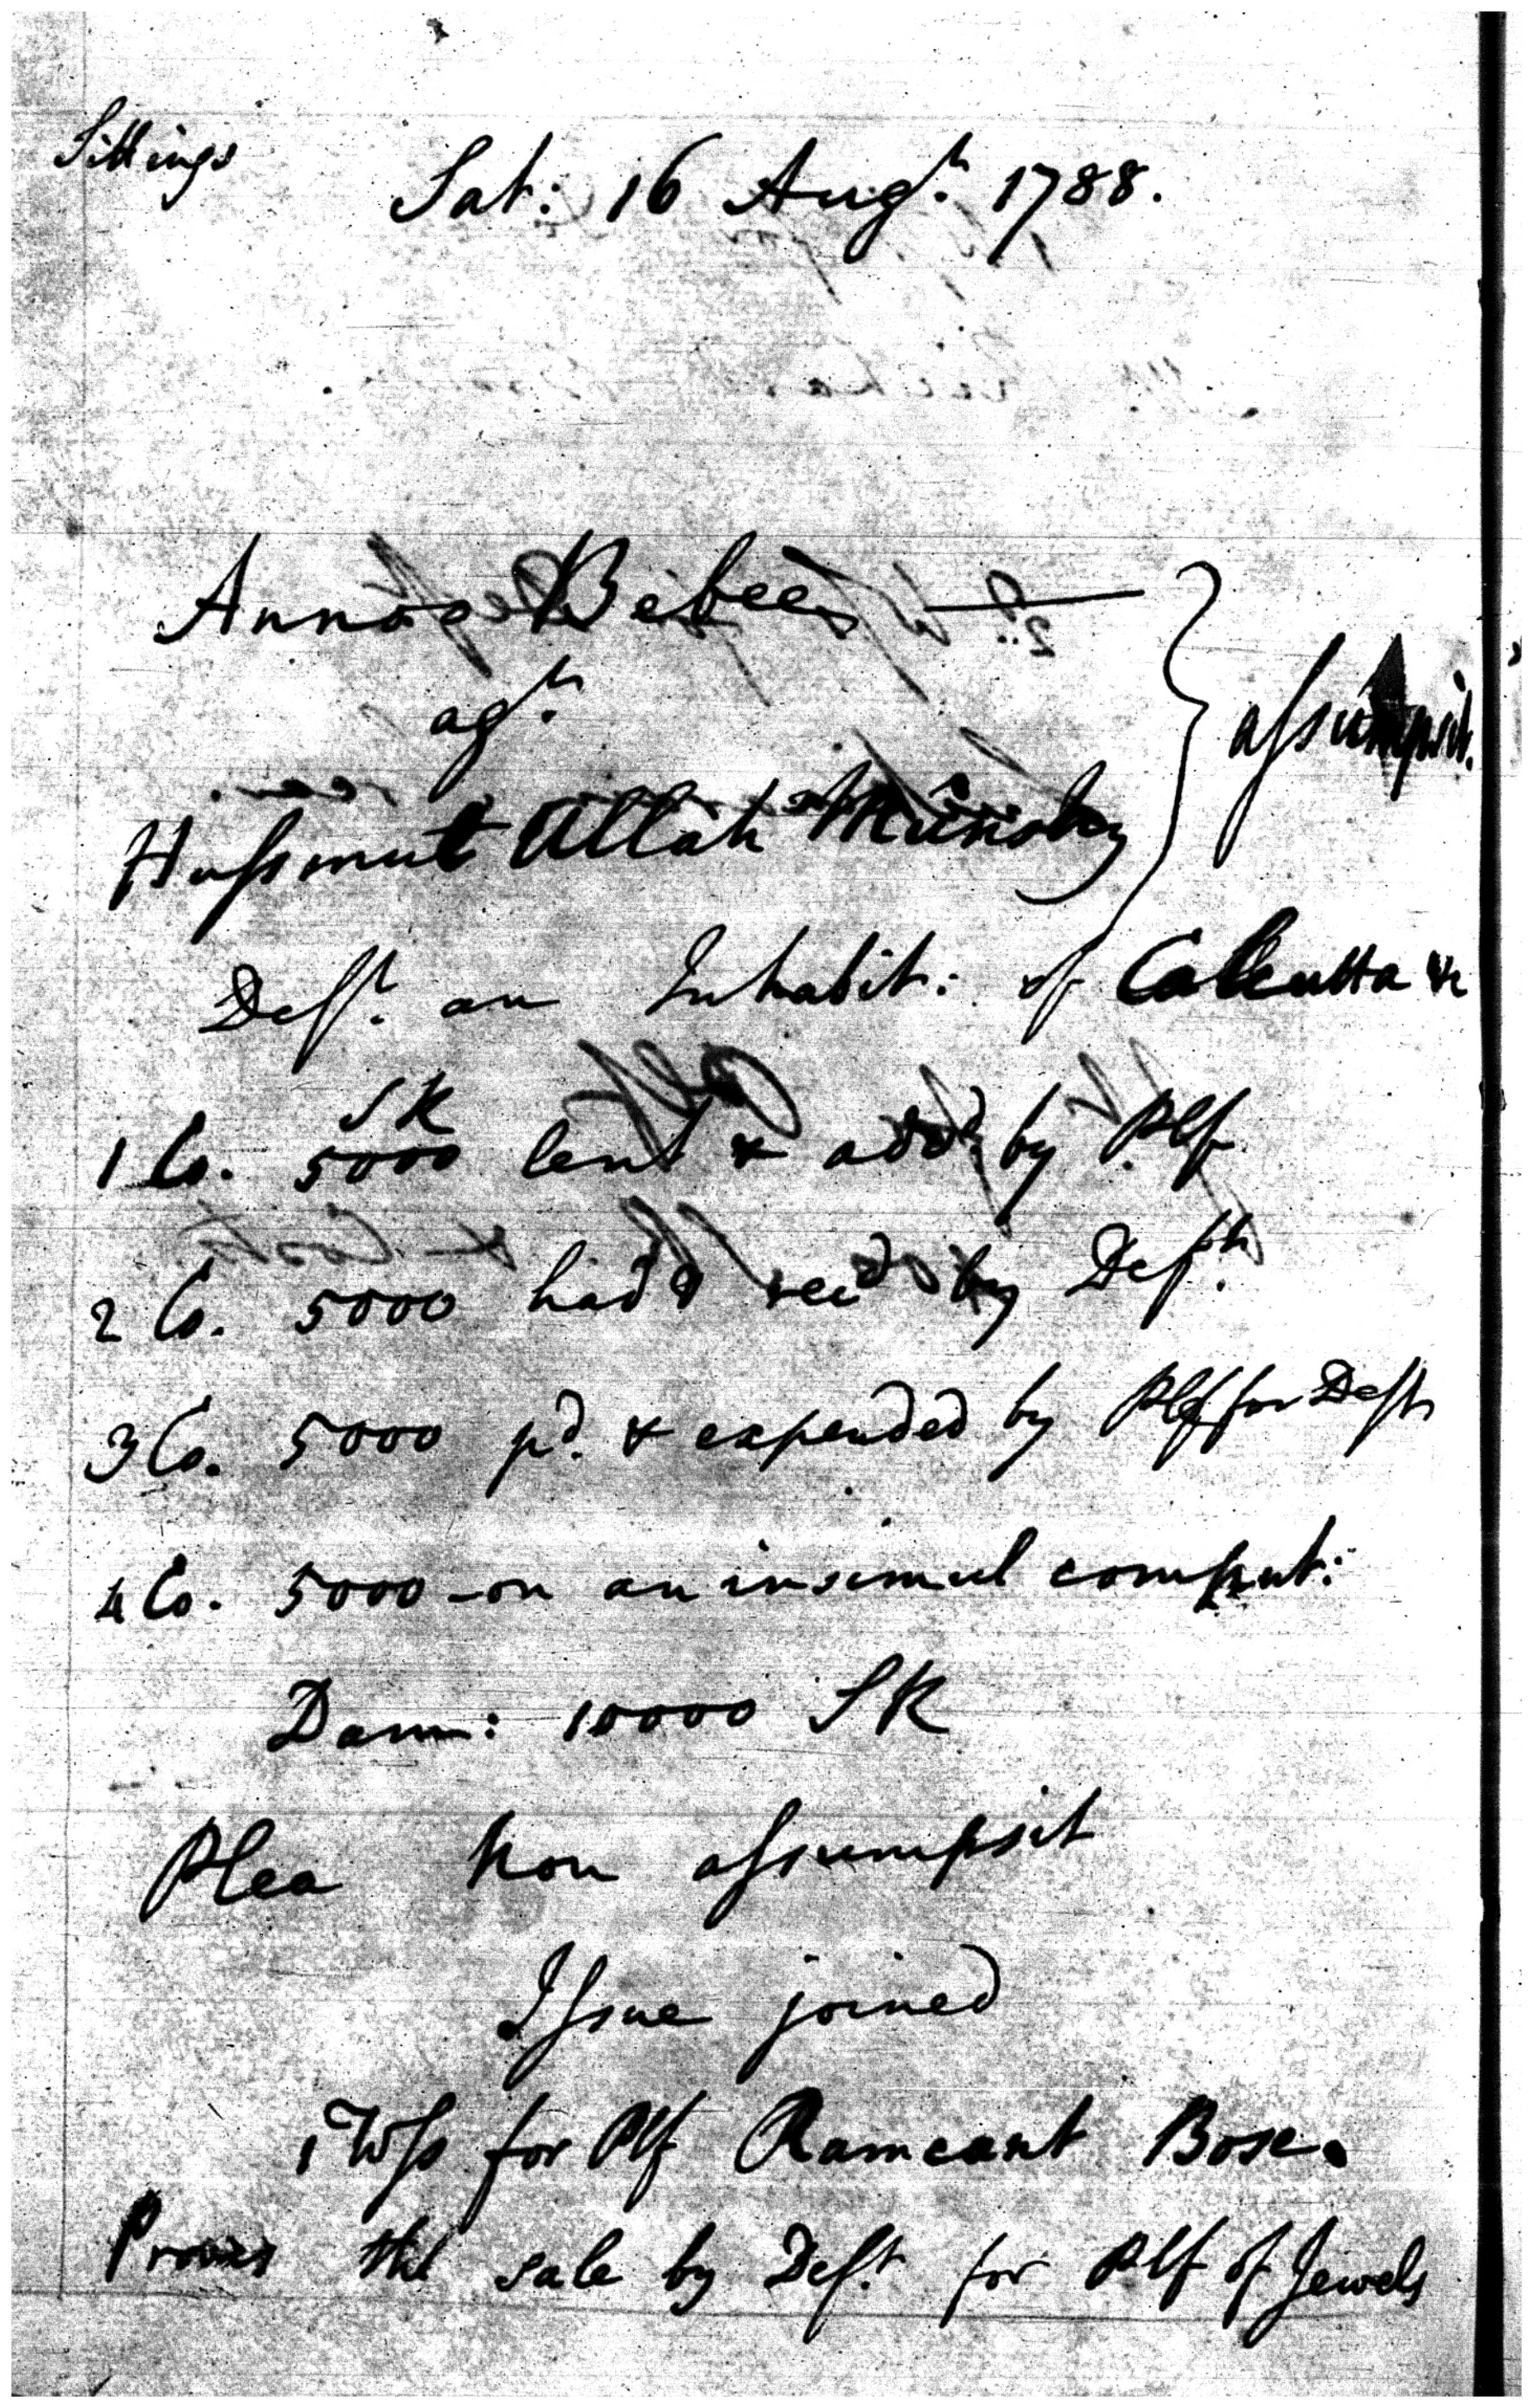 Sittings
Sat: 16 Augt. 1788.
Annoo Bebee
agt.
assumpsit.
Hussmut Ullah Munshy
Deft. an Inhabit: of Calcutta &c
SR
1 Co. 5000 lent & add. by Plf
2 Co. 5000 had & recd by Deft.
3 Co. 5000 pd. & expended by Plf for Deft
4 Co. 5000 - on an insimul comput:
Dam: 10000 SR
Plea Non assumpsit
Issue joined
1 Wss for Plf Ramcaut Bose.
Proves the sale by Deft. for Plf of Jewels